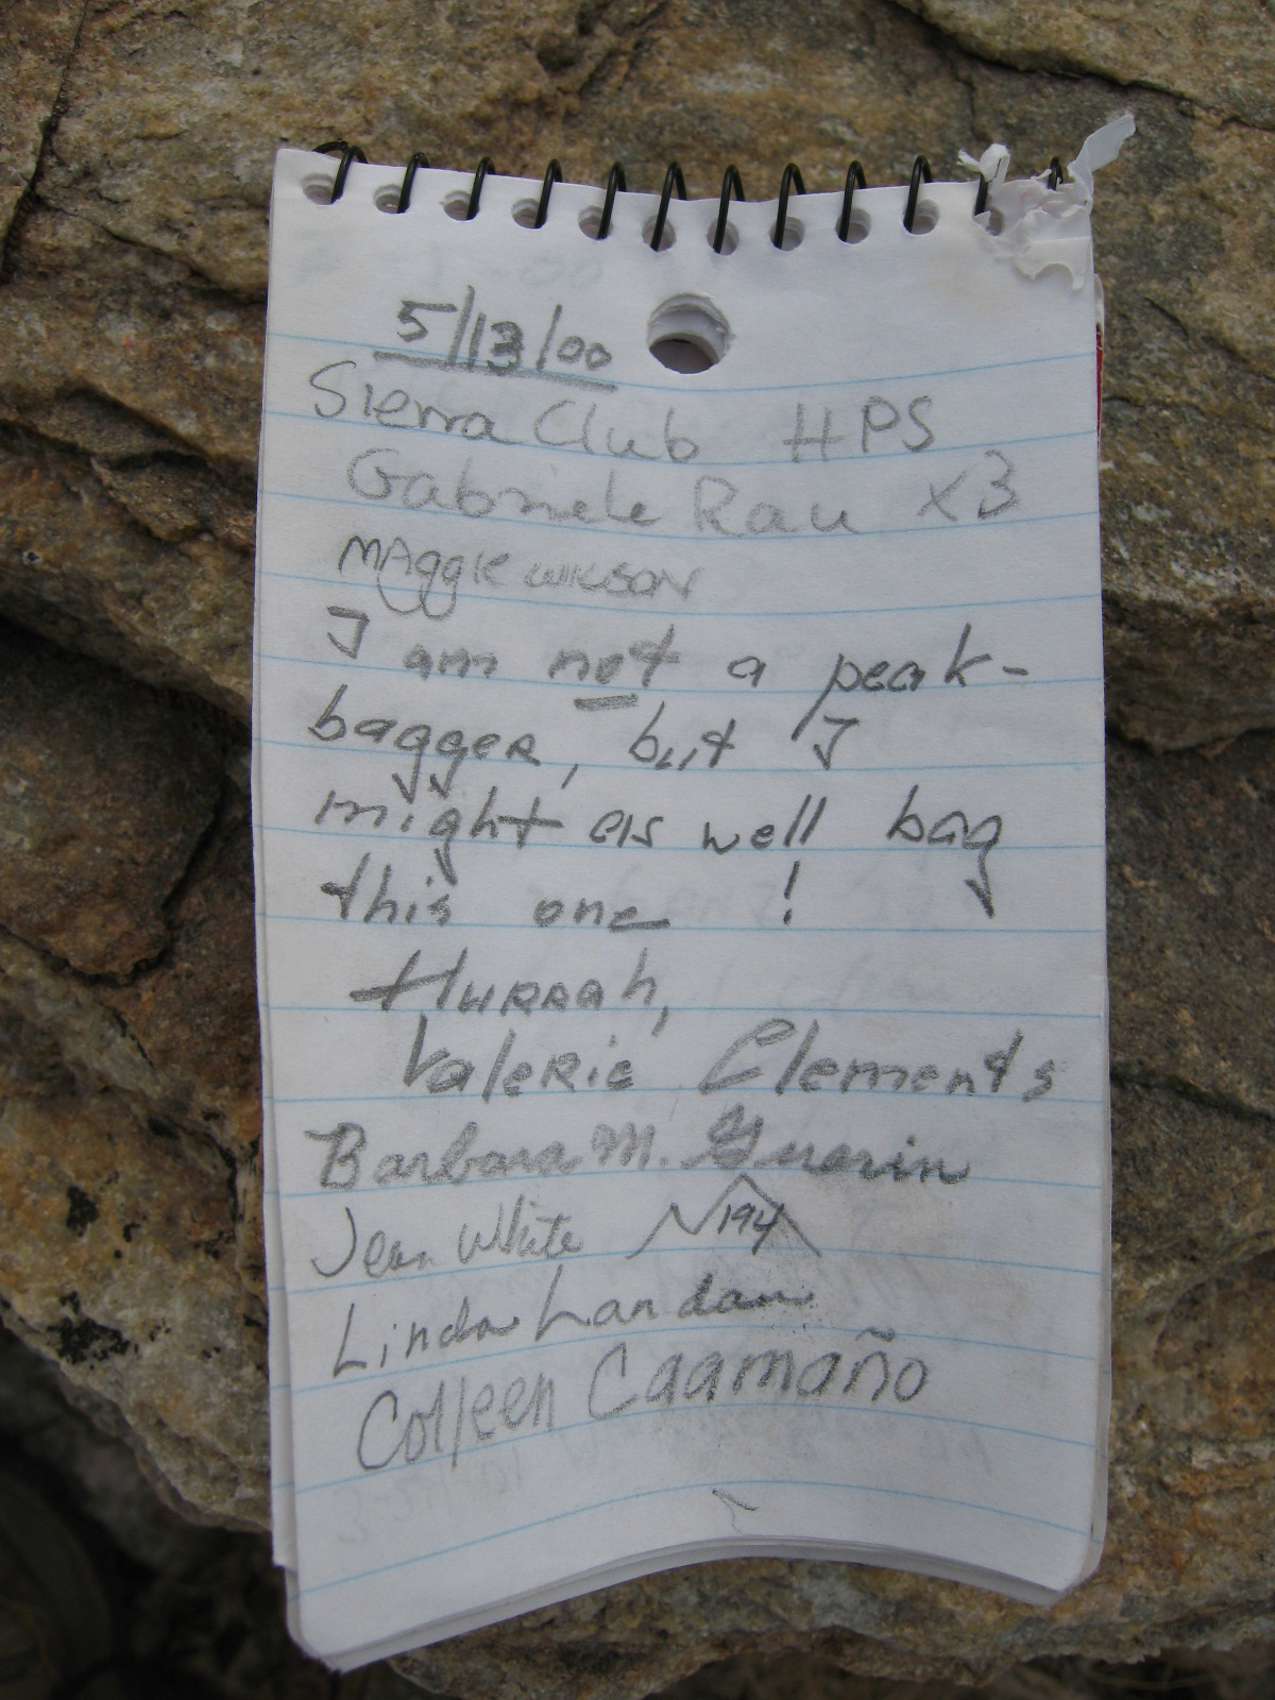 5/13/00
Sierra Club HPS
Gabriele Rau x3
MAggie WILSON
I am not a peak-
bagger, but I
might as well bag
this one !
Hurrah,
Valerie Clements
Barbara M. Guerin
Jean White 194
Linda Landau
Colleen Caamaño